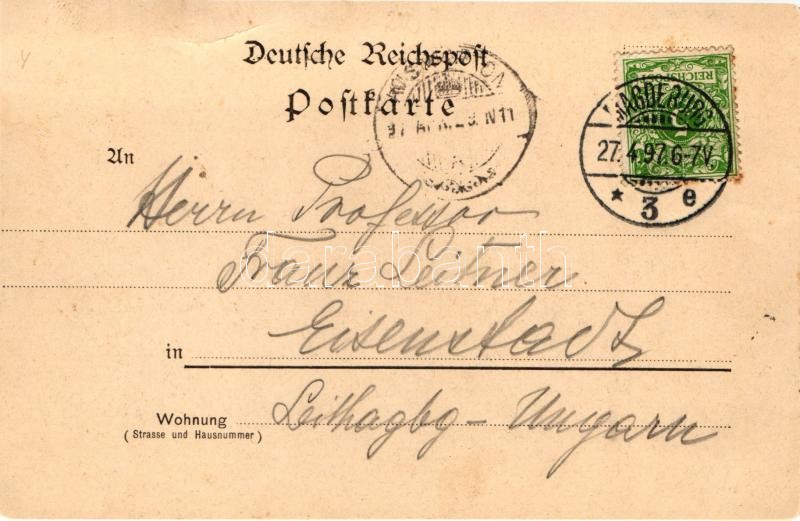 Deutsche Reichspost
Postkarte
MAGDEBURG
27.4.97.6-7V.
* 3 e
REICHSPOST
5
97 APR. N11
An
Herrn Professor
Franz Leitner
in Eisenstadt
Wohnung
(Strasse und Hausnummer)
Ungarn
darabanth